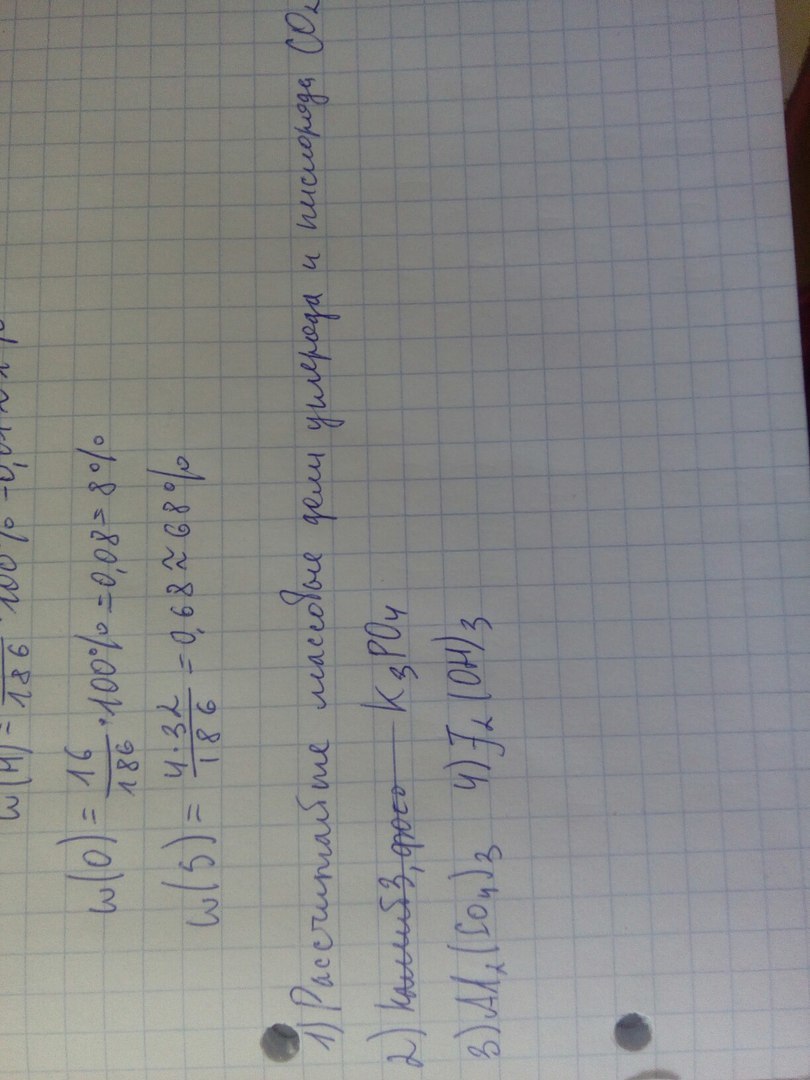 w(H) = /186 · 100% = 0,
w(O) = 16/186 · 100% = 0,08 = 8%
w(S) = 4·32/186 = 0,68 ≈ 68%
1) Рассчитайте массовые доли углерода и кислорода CO₂
2) K₃PO₄
3) Al₂(SO₄)₃ 4) F₂(OH)₃